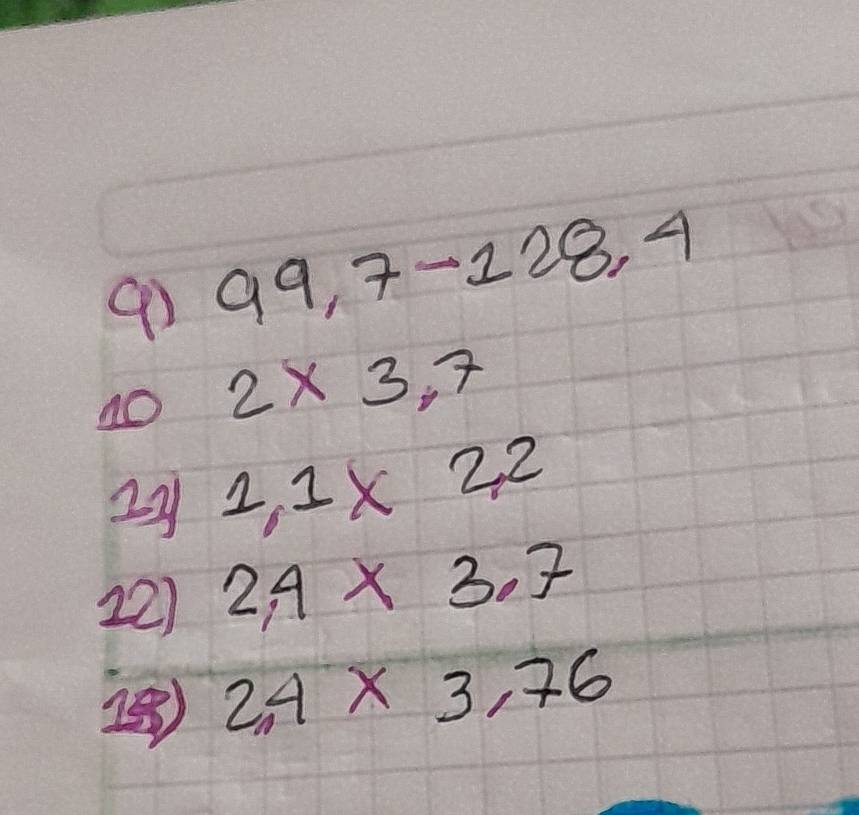 9) 99,7-128,4
10 2 x 3,7
11) 1,1 x 2,2
12) 2,4 x 3,7
13) 2,4 x 3,76